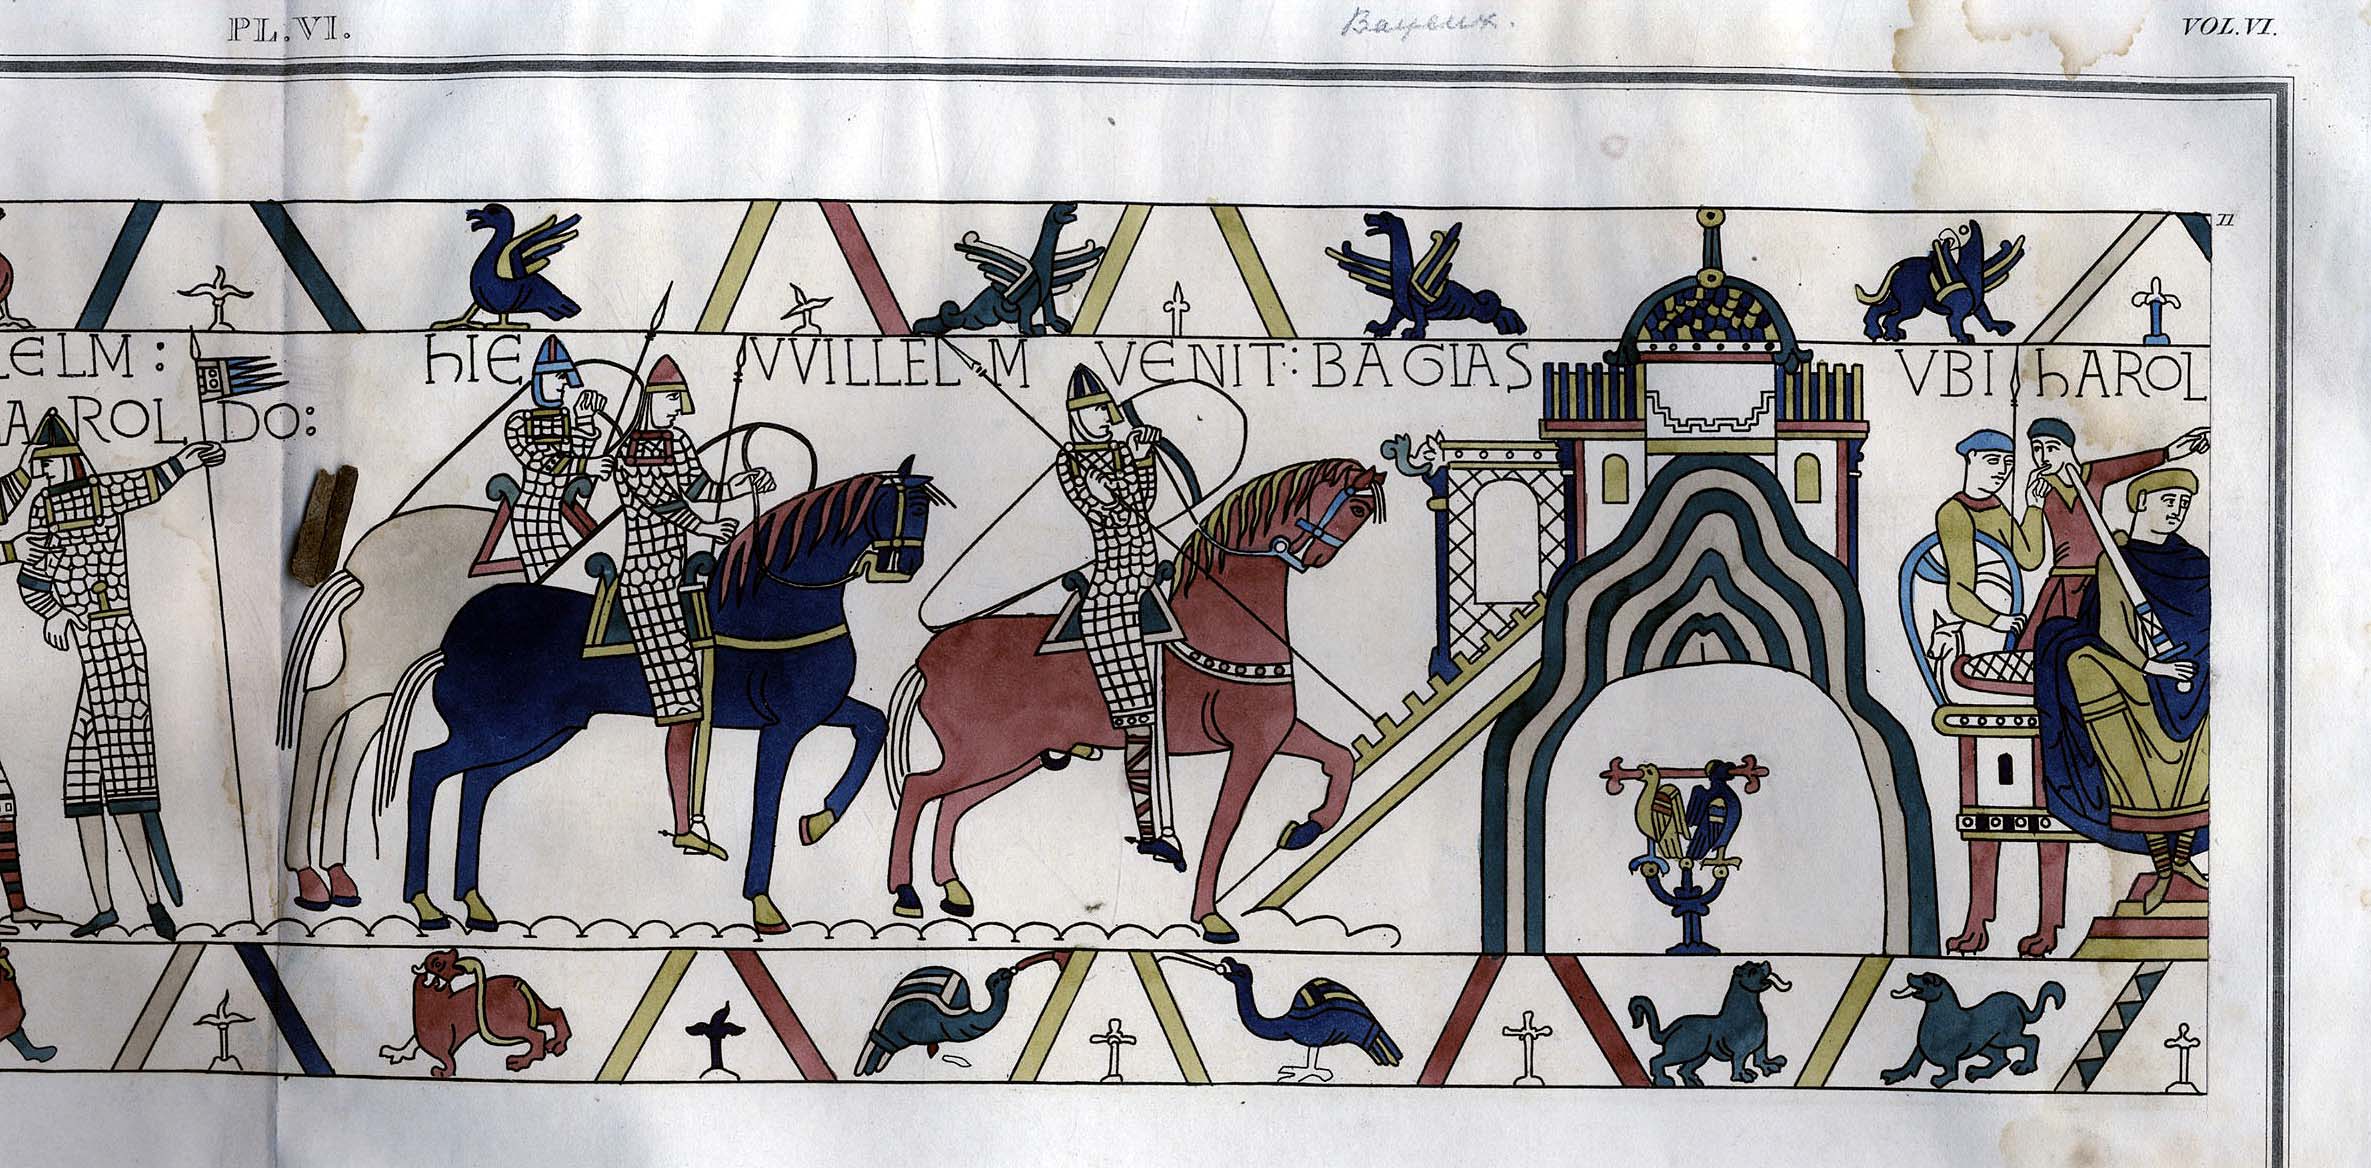 PL. VI.
Bayeux.
VOL. VI.
ELM :
AROL DO:
HIE WILLELM VENIT: BAGIAS
VBI HAROL